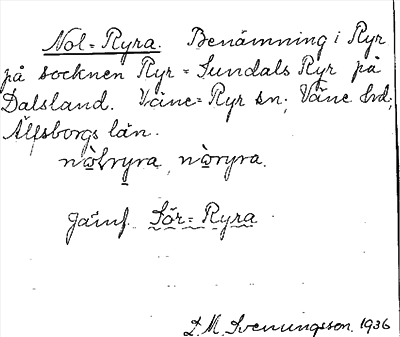 Nol=Ryra. Benämning i Ryr
på socknen Ryr = Sundals Ryr på
Dalsland. Väne=Ryr sn, Väne hd,
Älfsborgs län.
nὼɫryra, nὼryra.
Jämf. Sör=Ryra
D. M. Svenungsson. 1936